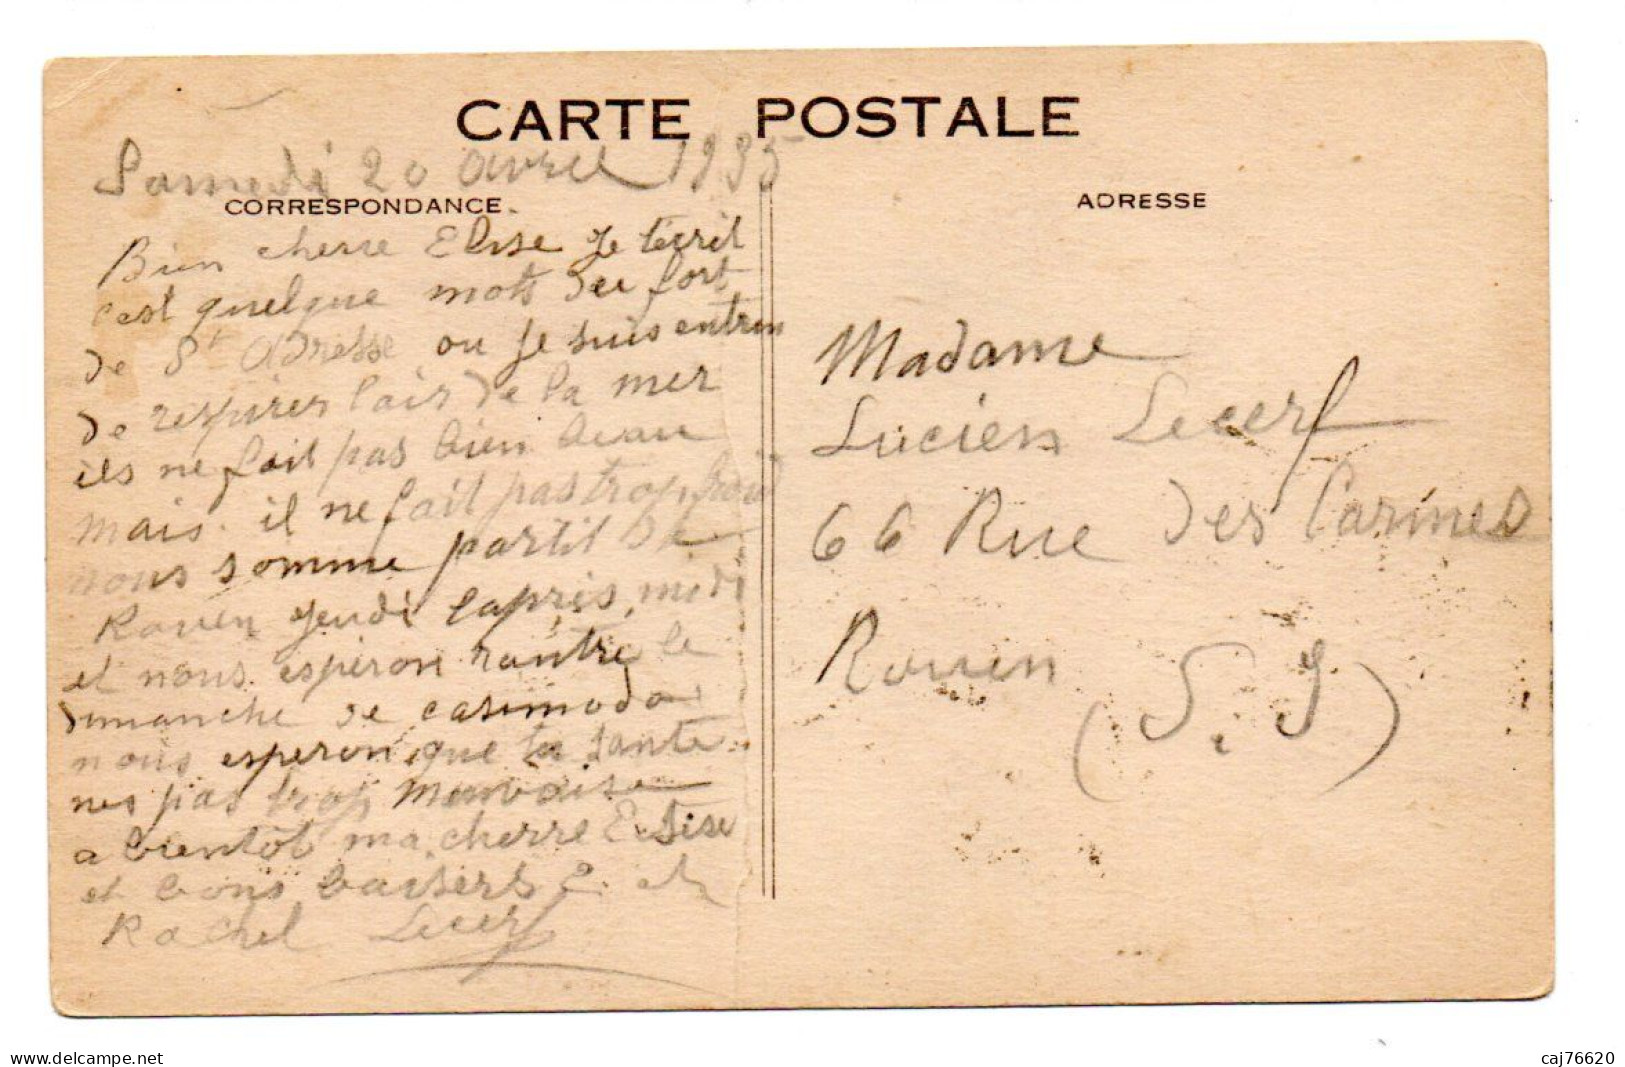 CARTE POSTALE
Samedi 20 avril 1935
CORRESPONDANCE
Bien cherre Elise Je técrit
cest quelque mots deu fort
de St Adresse ou je suis entrin
de respirer lair de la mer
ils ne fait pas bien beau
mais il ne fait pas trop froid
nous somme partit de
Rouen Jeudi laprès midi
et nous esperon rantré le
dimanche de casimodo
nous esperon que ta sante
nes pas trop mauvaise
a bientôt ma cherre Elise
et bons baisers
Rachel Lecerf
ADRESSE
Madame
Lucien Lecerf
66 Rue des Carmes
Rouen
(S. I)
delcampe.net
caj76620